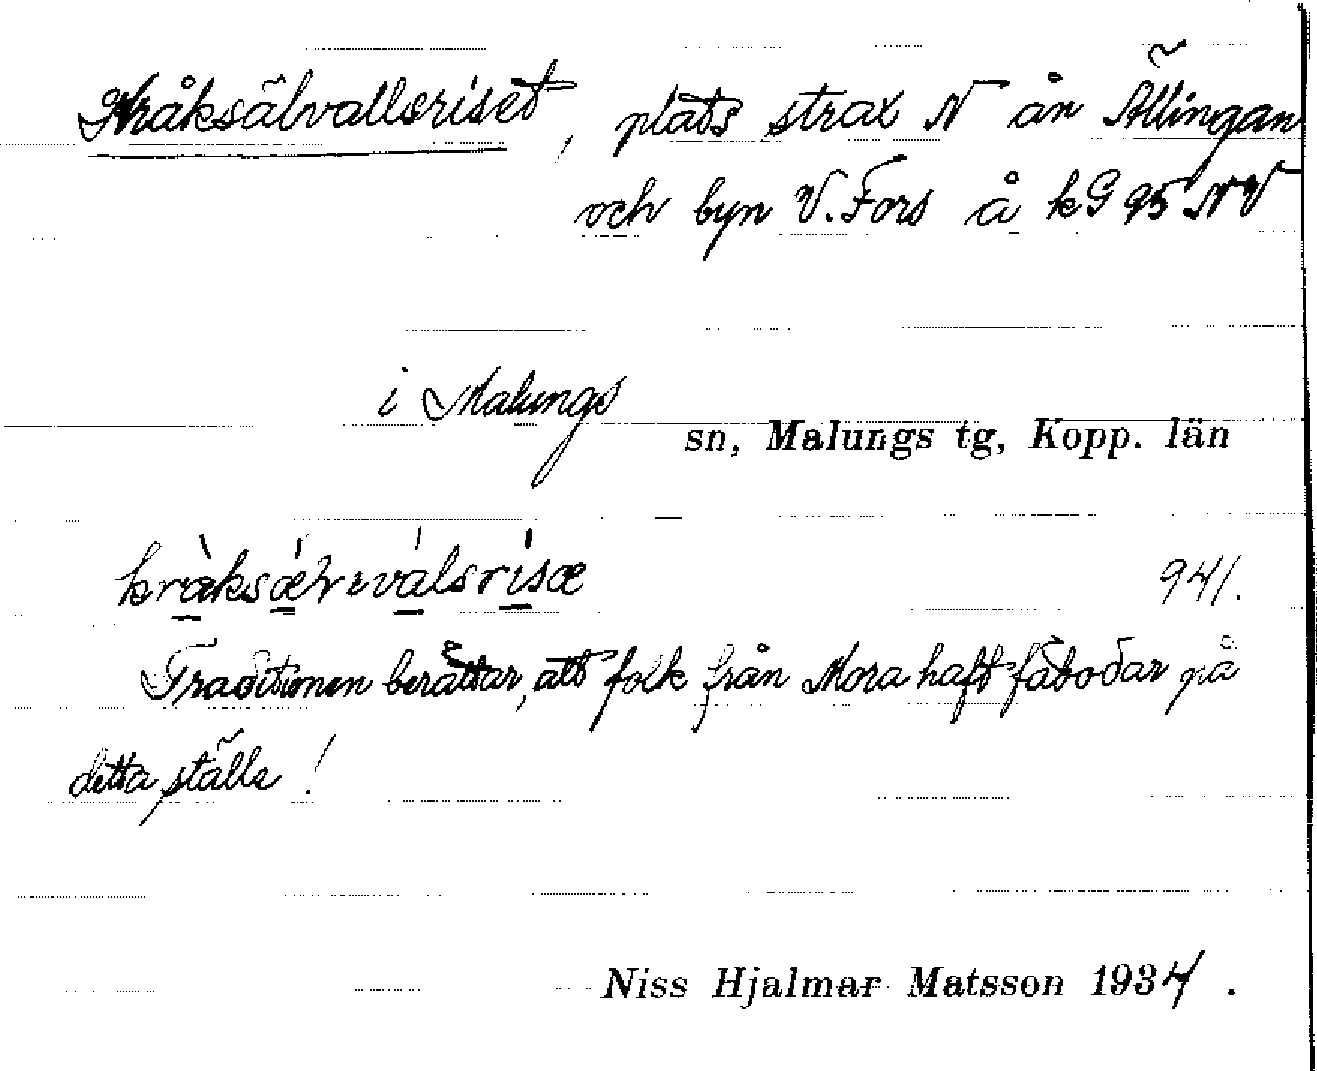 Kråksälvallsriset, plats strax N ån Ällingan
och byn V. Fors å kG 95 NV
i Malungs
sn, Malungs tg, Kopp. län
941.
Traditionen berättar, att folk från Mora haft fäbodar på
detta ställe!
Niss Hjalmar Matsson 1934.